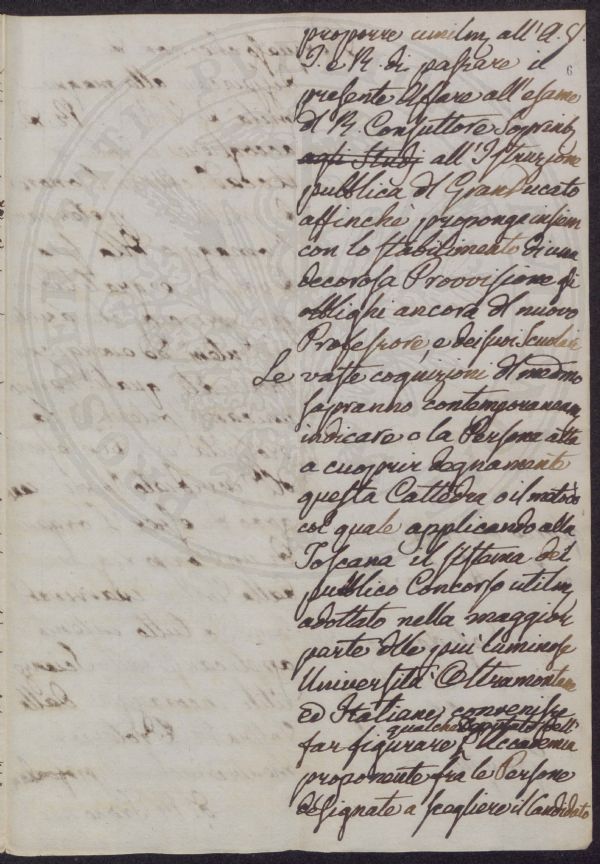 proporre umilm, all'A. V.
I. e R. di passare il
6
presente Affare all'esame
dl R. Consultore Soprint,
agli Studj all'Istruzione
pubblica dl GranDucato
affinchè proponga insiem
con lo stabilimento di una
decorosa Provvisione gli
obblighi ancora dl nuovo
Professore, e dei suoi Scuolari
Le vaste cognizioni dl medmo
sapranno contemporaneam,
indicare o la Persona atta
a cuoprir degnamente
questa Cattedra o il metodo
col quale applicando alla
Toscana il sistema del
pubblico Concorso utilm,
adottato nella maggior
parte dlle più luminose
Università Oltramontane
Ed Italiane, convenisse
qualche Deputato dell'
far figurare l'Accademia
proponente frà le Persone
designate a scegliere il Candidato